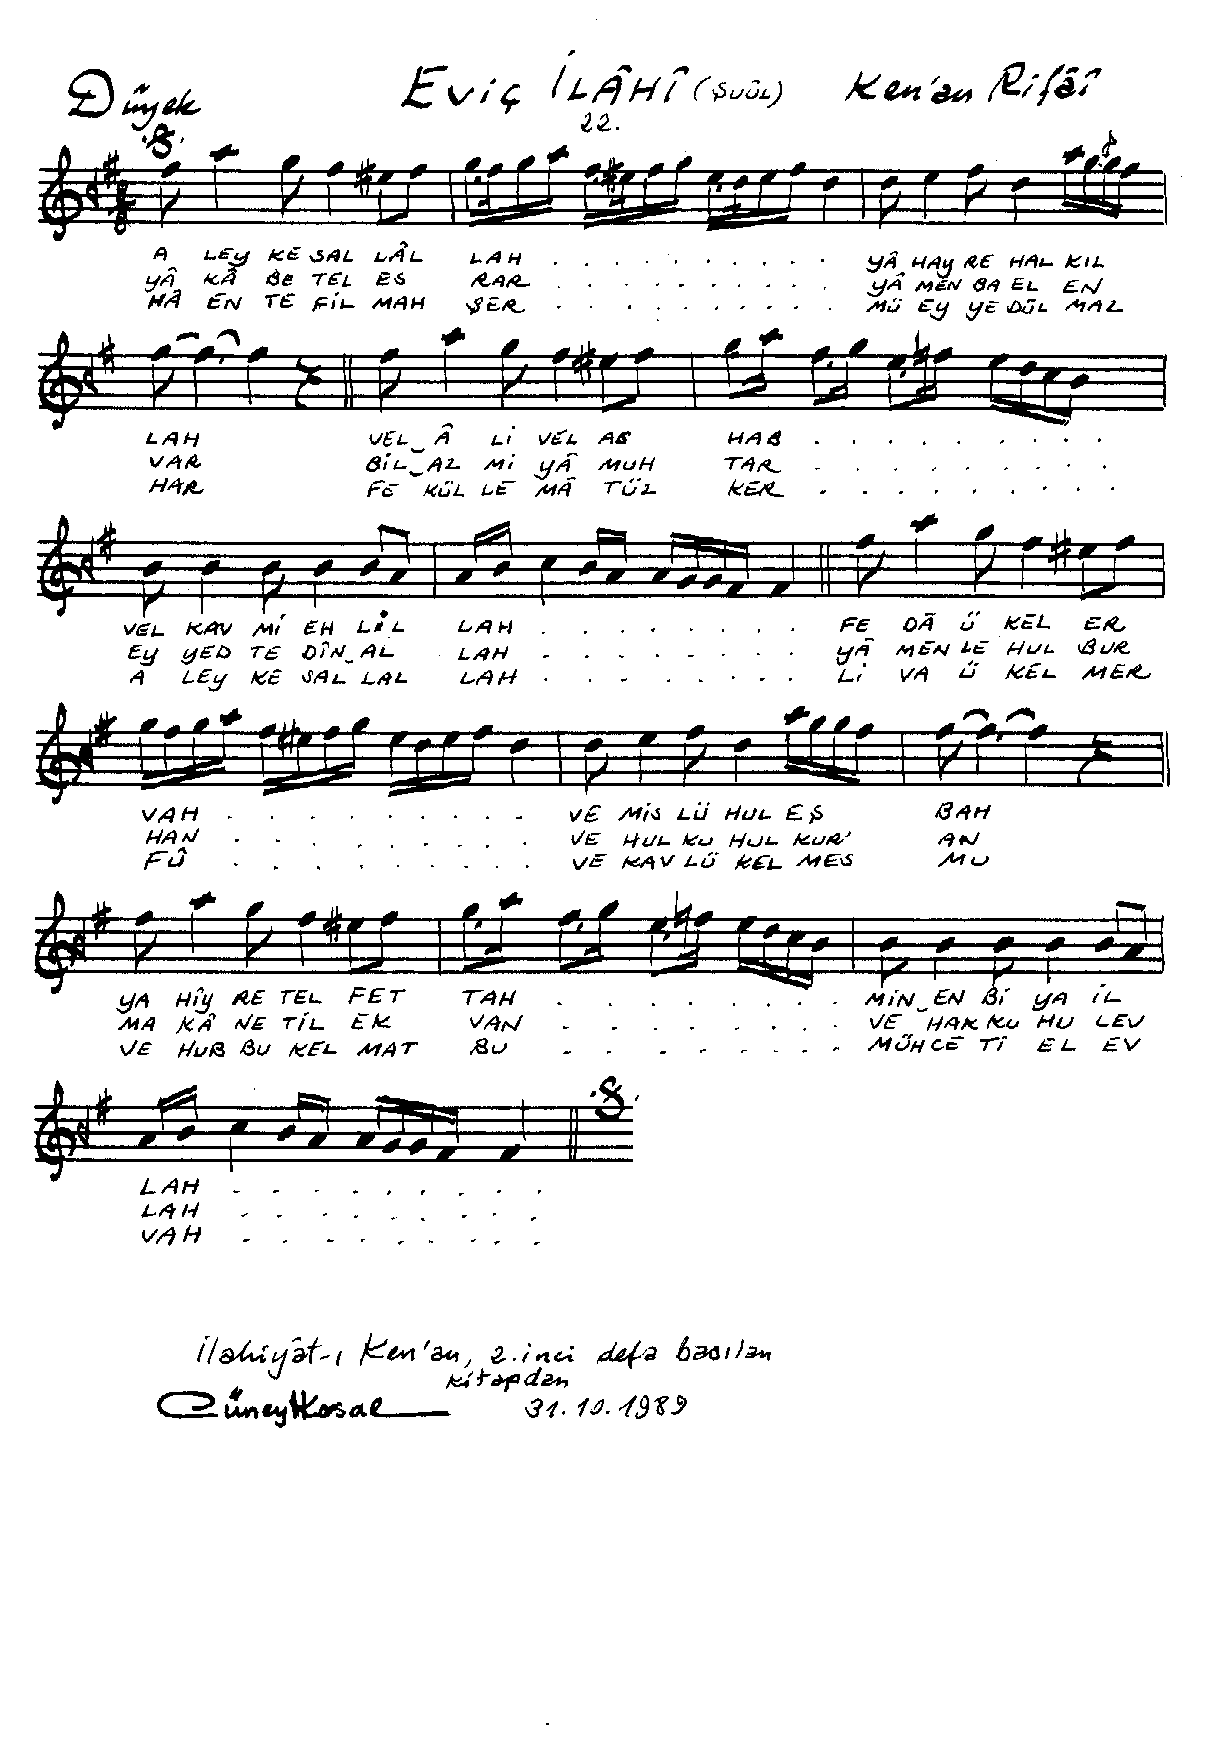 Düyek EVİÇ İLÂHÎ (ŞUÛL) Ken'an Rifâî
22.
A LEY KE SAL LÂL LAH . . . . . . . . . . YÂ HAY RE HAL KIL
YÂ KÂ BE TEL ES RAR . . . . . . . . . . YÂ MEN BA EL EN
HÂ EN TE FİL MAH ŞER . . . . . . . . . MÜ EY YE DÜL MAL
LAH VEL_Â Lİ VEL AS HAB . . . . . . . . .
VAR BİL_AZ Mİ YÂ MUH TAR . . . . . . . . .
HAR FE KÜL LE MÂ TÜL KER . . . . . . . . .
VEL KAV Mİ EH LİL LAH . . . . . . . . FE DÂ Ü KEL ER
EY YED TE DÎN_AL LAH . . . . . . . . YÂ MEN LE HUL BUR
A LEY KE SAL LAL LAH . . . . . . . . Lİ VA Ü KEL MER
VAH . . . . . . . . . VE MİS LÜ HUL EŞ BAH
HAN . . . . . . . . . VE HUL KU HUL KUR' AN
FÛ . . . . . . . . VE KAV LÜ KEL MES MU
YA HÎY RE TEL FET TAH . . . . . . . . MİN_EN Bİ YA İL
MA KÂ NE TİL EK VAN . . . . . . . . VE HAK KU HU LEV
VE HUB BU KEL MAT BU . . . . . . . . MÜHCE Tİ EL EV
LAH . . . . . . . . .
LAH . . . . . . . . .
VAH . . . . . . . . .
İlahiyât-ı Ken'an, 2.inci defa basılan
kitapdan
CüneytKosal 31.10.1989